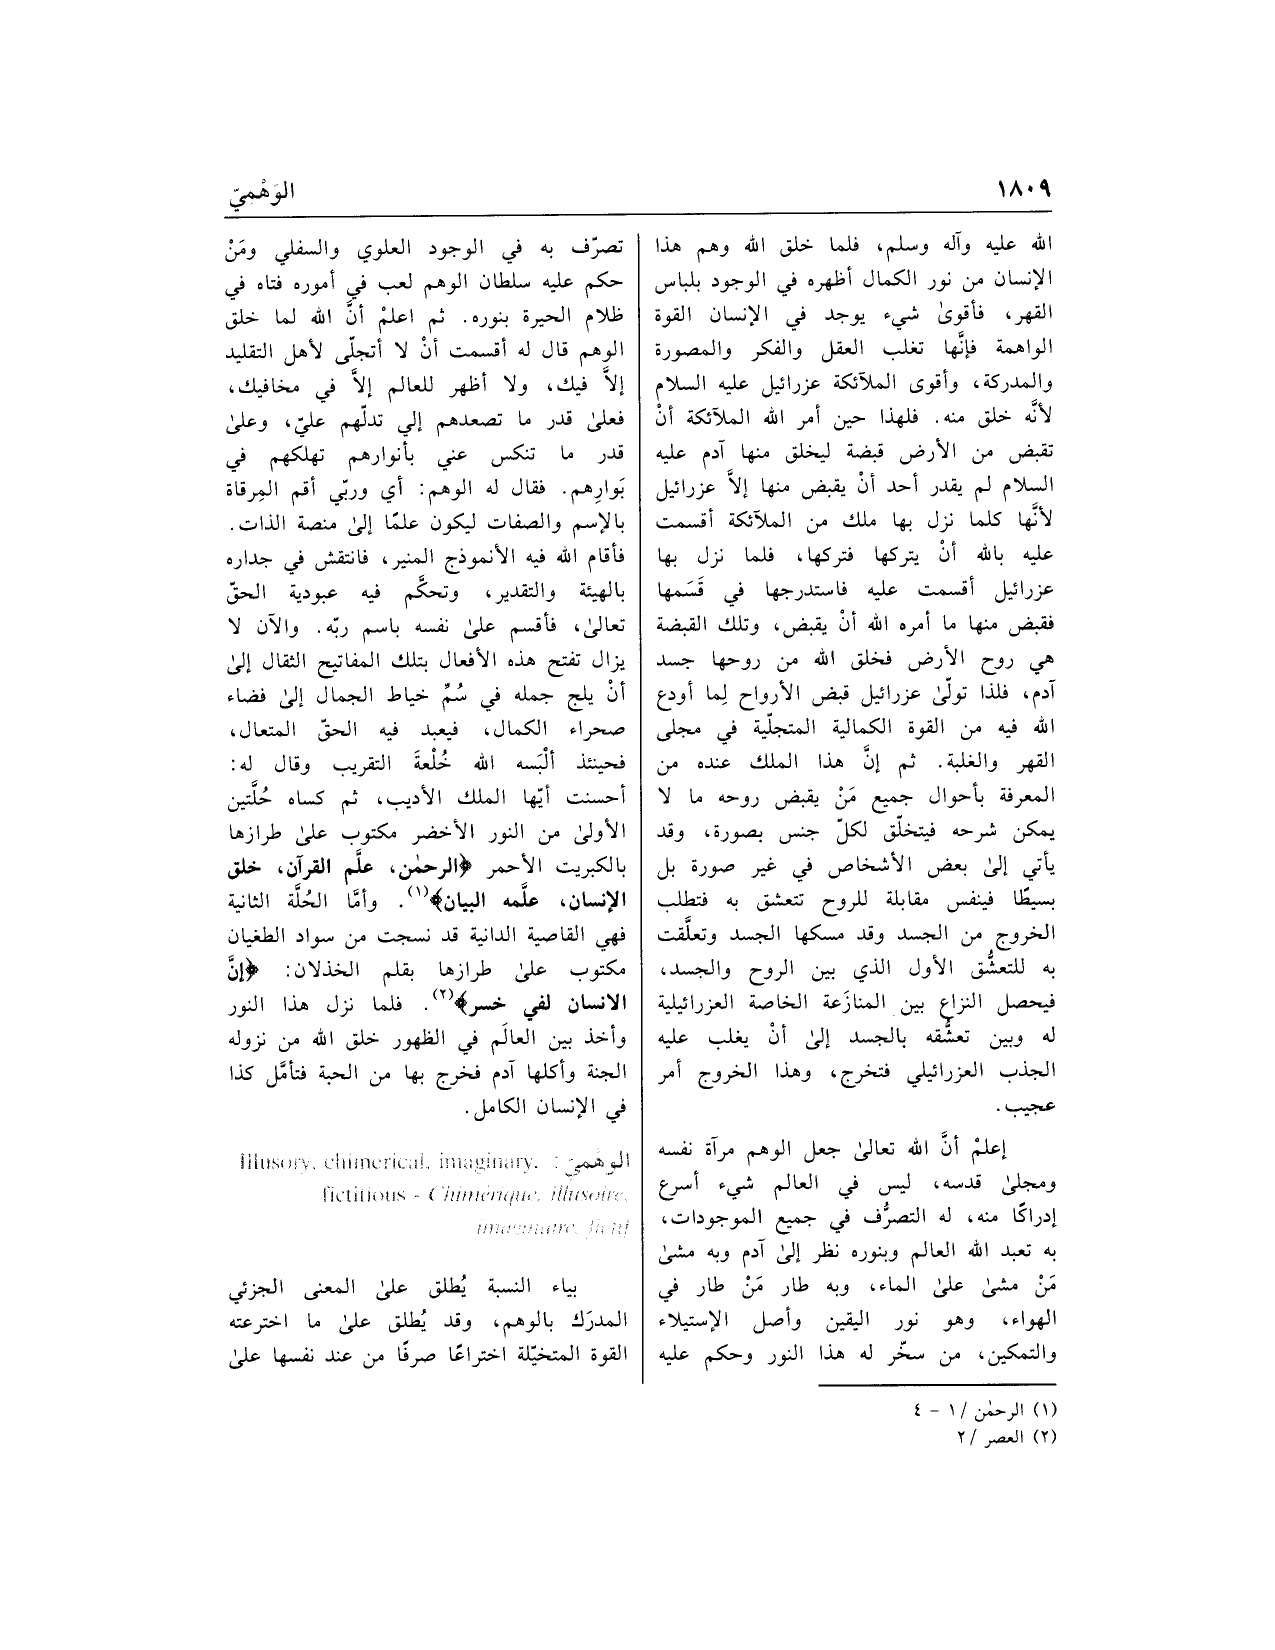 ١٨٠٩
الوَهْميّ
الله عليه وآله وسلم، فلما خلق الله وهم هذا
الإنسان من نور الكمال أظهره في الوجود بلباس
القهر، فأقوىٰ شيء يوجد في الإنسان القوة
الواهمة فإنَّها تغلب العقل والفكر والمصورة
والمدركة، وأقوى الملائكة عزرائيل عليه السلام
لأنَّه خلق منه. فلهذا حين أمر الله الملائكة أنْ
تقبض من الأرض قبضة ليخلق منها آدم عليه
السلام لم يقدر أحد أنْ يقبض منها إلاَّ عزرائيل
لأنَّها كلما نزل بها ملك من الملائكة أقسمت
عليه بالله أنْ يتركها فتركها، فلما نزل بها
عزرائيل أقسمت عليه فاستدرجها في قَسَمها
فقبض منها ما أمره الله أنْ يقبض، وتلك القبضة
هي روح الأرض فخلق الله من روحها جسد
آدم، فلذا تولّىٰ عزرائيل قبض الأرواح لِما أودع
الله فيه من القوة الكمالية المتجلّية في مجلى
القهر والغلبة. ثم إنَّ هذا الملك عنده من
المعرفة بأحوال جميع مَنْ يقبض روحه ما لا
يمكن شرحه فيتخلّق لكلّ جنس بصورة، وقد
يأتي إلىٰ بعض الأشخاص في غير صورة بل
بسيطًا فينفس مقابلة للروح تتعشق به فتطلب
الخروج من الجسد وقد مسكها الجسد وتعلَّقت
به للتعشُّق الأول الذي بين الروح والجسد،
فيحصل النزاع بين المنازَعة الخاصة العزرائيلية
له وبين تعشُّقه بالجسد إلىٰ أنْ يغلب عليه
الجذب العزرائيلي فتخرج، وهذا الخروج أمر
عجيب.
إعلمْ أنَّ الله تعالىٰ جعل الوهم مرآة نفسه
ومجلىٰ قدسه، ليس في العالم شيء أسرع
إدراكًا منه، له التصرُّف في جميع الموجودات،
به تعبد الله العالم وبنوره نظر إلىٰ آدم وبه مشىٰ
مَنْ مشىٰ علىٰ الماء، وبه طار مَنْ طار في
الهواء، وهو نور اليقين وأصل الإستيلاء
والتمكين، من سخّر له هذا النور وحكم عليه
تصرّف به في الوجود العلوي والسفلي ومَنْ
حكم عليه سلطان الوهم لعب في أموره فتاه في
ظلام الحيرة بنوره. ثم اعلمْ أنَّ الله لما خلق
الوهم قال له أقسمت أنْ لا أتجلّى لأهل التقليد
إلاَّ فيك، ولا أظهر للعالم إلاَّ في مخافيك،
فعلىٰ قدر ما تصعدهم إلي تدلّهم عليّ، وعلىٰ
قدر ما تنكس عني بأنوارهم تهلكهم في
بَوارِهم. فقال له الوهم: أي وربّي أقم المِرقاة
بالإسم والصفات ليكون علمًا إلىٰ منصة الذات.
فأقام الله فيه الأنموذج المنير، فانتقش في جداره
بالهيئة والتقدير، وتحكَّم فيه عبودية الحقّ
تعالىٰ، فأقسم علىٰ نفسه باسم ربّه. والآن لا
يزال تفتح هذه الأفعال بتلك المفاتيح الثقال إلىٰ
أنْ يلج جمله في سُمِّ خياط الجمال إلىٰ فضاء
صحراء الكمال، فيعبد فيه الحقّ المتعال،
فحينئذ ألْبَسه الله خُلْعةَ التقريب وقال له:
أحسنت أيّها الملك الأديب، ثم كساه حُلَّتين
الأولىٰ من النور الأخضر مكتوب علىٰ طرازها
بالكبريت الأحمر ﴿الرحمٰن، علَّم القرآن، خلق
الإنسان، علَّمه البيان﴾(١). وأمَّا الحُلَّة الثانية
فهي القاصية الدانية قد نسجت من سواد الطغيان
مكتوب علىٰ طرازها بقلم الخذلان: ﴿إنَّ
الانسان لفي خسر﴾(٢). فلما نزل هذا النور
وأخذ بين العالَم في الظهور خلق الله من نزوله
الجنة وأكلها آدم فخرج بها من الحبة فتأمَّل كذا
في الإنسان الكامل.
الوهْميّ : Illusory, chimerical, imaginary,
fictitious - Chimérique, illusoire,
imaginaire, fictif
بياء النسبة يُطلق علىٰ المعنى الجزئي
المدرَك بالوهم، وقد يُطلق علىٰ ما اخترعته
القوة المتخيّلة اختراعًا صرفًا من عند نفسها علىٰ
(١) الرحمٰن / ١ - ٤
(٢) العصر / ٢